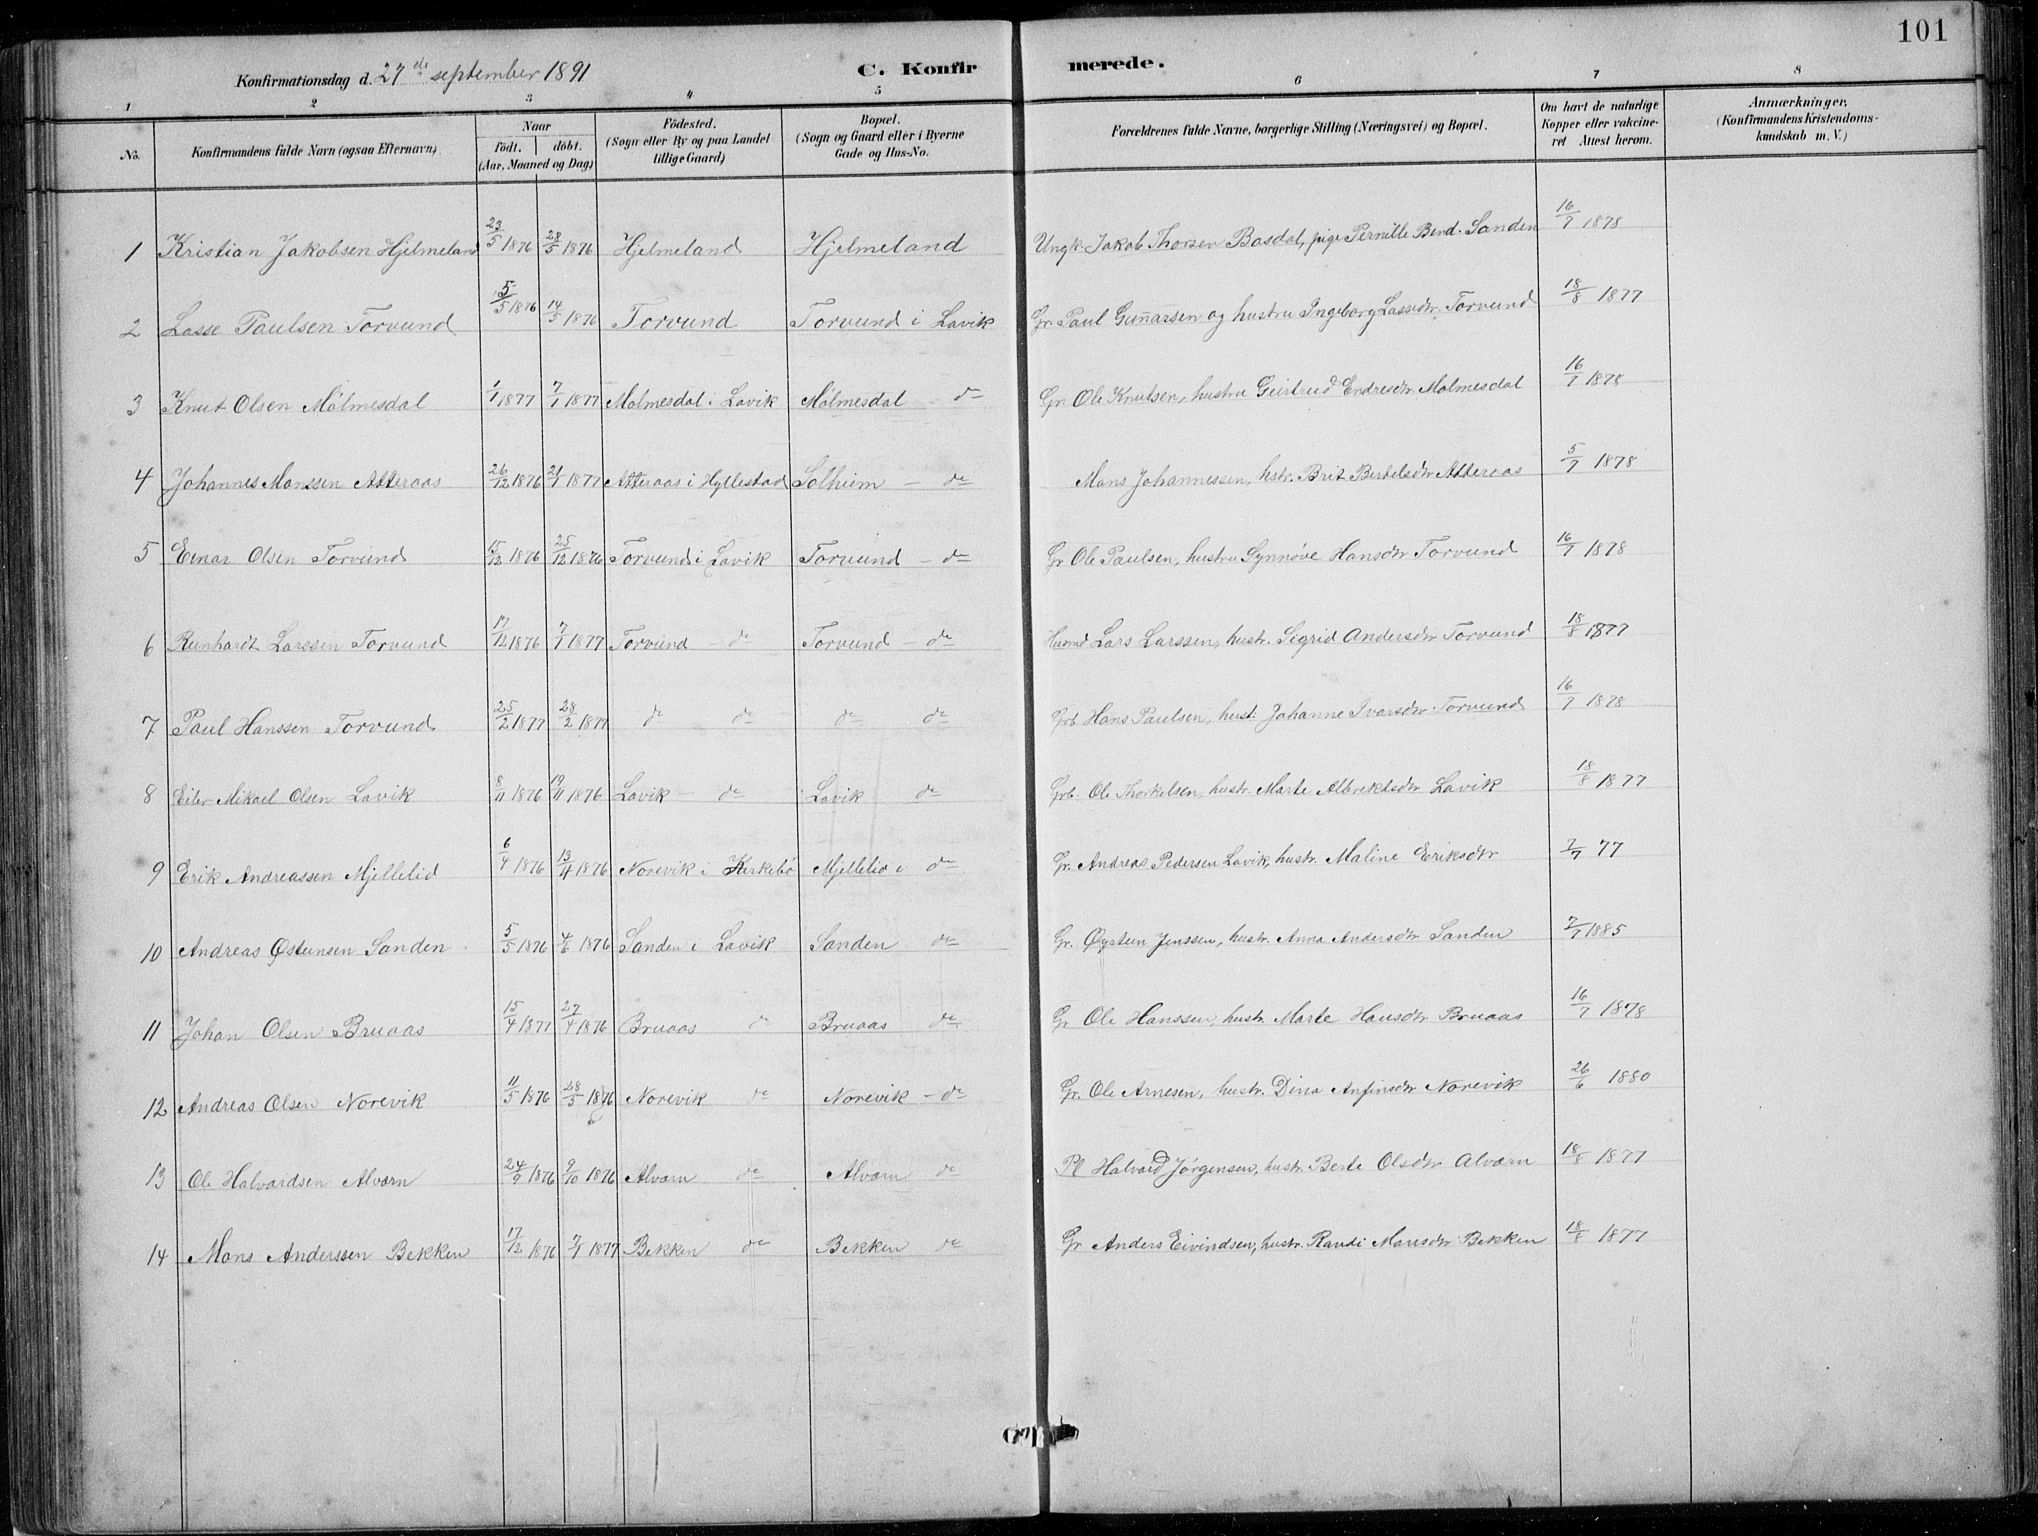 101
Konfirmationsdag d. 27de september 1891 C. Konfirmerede.
1 2 3 4 5 6 7 8
No. Konfirmandens fulde Navn (ogsaa Efternavn) Naar födt. döbt. (Aar, Maaned og Dag) Födested. (Sogn eller By og paa Landet tillige Gaard) Bopæl. (Sogn og Gaard eller i Byerne Gade og Hus-No. Forældrenes fulde Navne, borgerlige Stilling (Næringsvei) og Bopæl. Om havt de naturlige Kopper eller vakcineret Attest herom. Anmærkninger, (Konfirmandens Kristendomskundskab m. V.)
1 Kristian Jakobsen Hjelmeland 23/5 1876 28/5 1876 Hjelmeland Hjelmeland Ungk. Jakob Thorsen Basdal, pige Pernille Bend. Sanden 16/7 1878
2 Lasse Paulsen Torvund 5/5 1876 14/5 1876 Torvund Torvund i Lavik Gr. Paul Gunnarsen og hustru Ingeborg Lassedtr. Torvund 18/8 1877
3 Knut Olsen Mölmesdal 1/1 1877 7/1 1877 Mölmesdal i Lavik Mölmesdal - do Gr. Ole Knutsen, hustru Geirtrud Endresdtr Mölmesdal 16/7 1878
4 Johannes Monssen Atteraas 26/12 1876 21/1 1877 Atteraas i Hyllestad Solheim - do Mons Johannessen, hstr. Brit Bertelsdtr Atteraas 5/7 1878
5 Einar Olsen Torvund 15/12 1876 25/12 1876 Torvund i Lavik Torvund - do Gr Ole Paulsen, hustru Synnöve Hansdtr Torvund 16/7 1878
6 Reinhardt Larssen Torvund 17/12 1876 7/1 1877 Torvund - do Torvund - do Husmd Lars Larssen, hustr. Sigrid Andersdtr Torvund 18/8 1877
7 Paul Hanssen Torvund 25/2 1877 28/2 1877 do do do do Grb Hans Paulsen, hust: Johanne Ivarsdtr Torvund 16/7 1878
8 Eiler Mikael Olsen Lavik 8/11 1876 19/11 1876 Lavik - do Lavik do Grb. Ole Thorkelsen, hustr. Marte Albriktsdtr Lavik 18/8 1877
9 Erik Andreassen Mjellelid 6/4 1876 13/4 1876 Norevik i Kirkebö Mjellelid i do Gr. Andreas Pedersen Lavik, hustr. Maline Eriksdtr 7/7 77
10 Andreas Östensen Sanden 5/5 1876 4/6 1876 Sanden i Lavik Sanden do Gr. Øystein Jenssen, hustr. Anna Andersdtr Sanden 7/7 1885
11 Johan Olsen Bruaas 15/4 1877 27/4 1876 Bruaas do Bruaas do Gr Ole Hanssen, hustr. Marte Hansdtr Bruaas 16/7 1878
12 Andreas Olsen Norevik 11/5 1876 28/5 1876 Norevik do Norevik - do Gr. Ole Arnesen, hustr. Dina Anfinsdtr Norevik 26/6 1880
13 Ole Halvardsen Alværn 24/9 1876 9/10 1876 Alværn do Alværn do Pl Halvard Jörgensen, hustr Berte Olsdtr Alværn 18/8 1877
14 Mons Anderssen Bekken 17/12 1876 7/1 1877 Bekken do Bekken do Gr Anders Eivindsen, hustr. Randi Monsdtr Bekken 18/8 1877